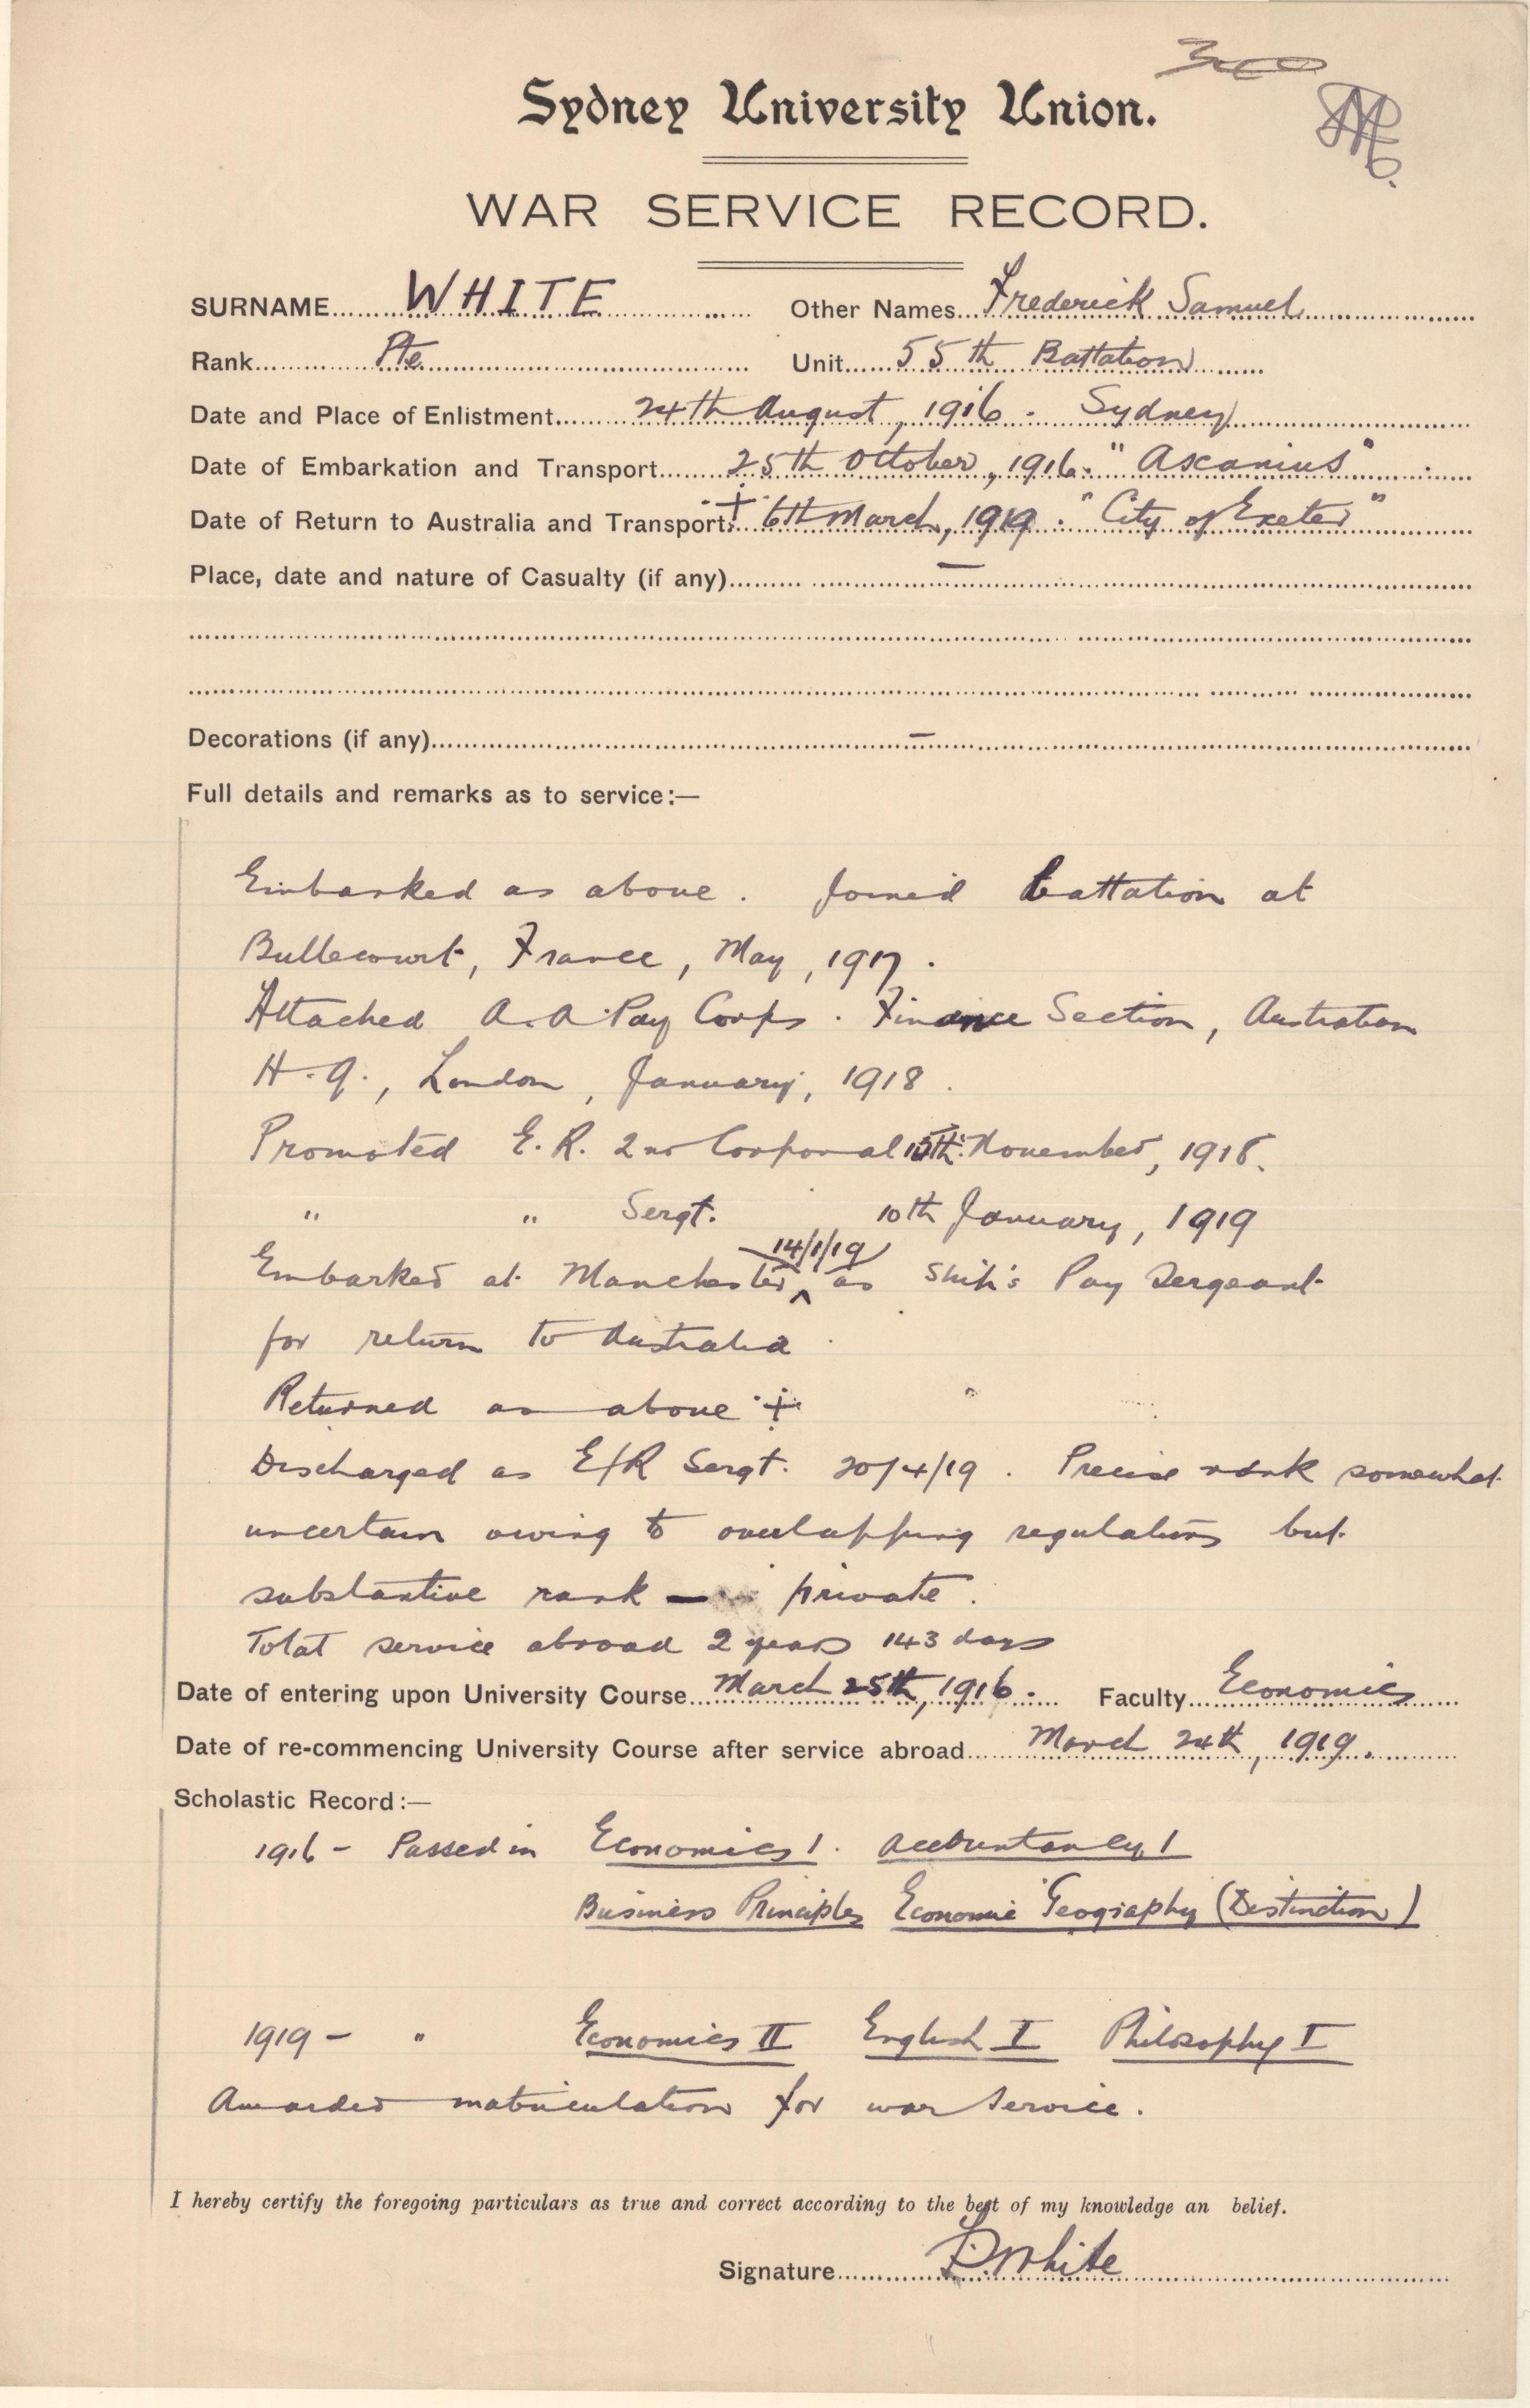 340
Sydney University Union.
WAR SERVICE RECORD.
SURNAME WHITE Other Names Frederick Samuel
Rank Pte. Unit 55th Battalion
Date and Place of Enlistment 24th August, 1916. Sydney
Date of Embarkation and Transport 25th October, 1916. "Ascanius"
Date of Return to Australia and Transport 6th March, 1919. "City of Exeter"
Place, date and nature of Casualty (if any) —
Decorations (if any) —
Full details and remarks as to service:—
Embarked as above. Joined battalion at
Bullecourt, France, May, 1917.
Attached A.A. Pay Corps. Finance Section, Australian
H.Q., London, January, 1918.
Promoted E.R. 2nd Corporal November, 1918.
" " Sergt. 10th January, 1919
14/1/19
Embarked at Manchester ^ as Ship's Pay Sergeant
for return to Australia.
Returned as above
Discharged as E/R Sergt. 20/4/19. Precise rank somewhat
uncertain owing to overlapping regulations but
substantive rank — private.
Total service abroad 2 years 143 days
Date of entering upon University Course March 25th, 1916. Faculty Economics
Date of re-commencing University Course after service abroad March 24th, 1919.
Scholastic Record:—
1916 - Passed in Economics I. Accountancy I
Business Principles Economic Geography (Distinction)
1919 - " Economics II English I Philosophy I
Awarded matriculation for war service.
I hereby certify the foregoing particulars as true and correct according to the best of my knowledge an belief.
Signature F.S. White